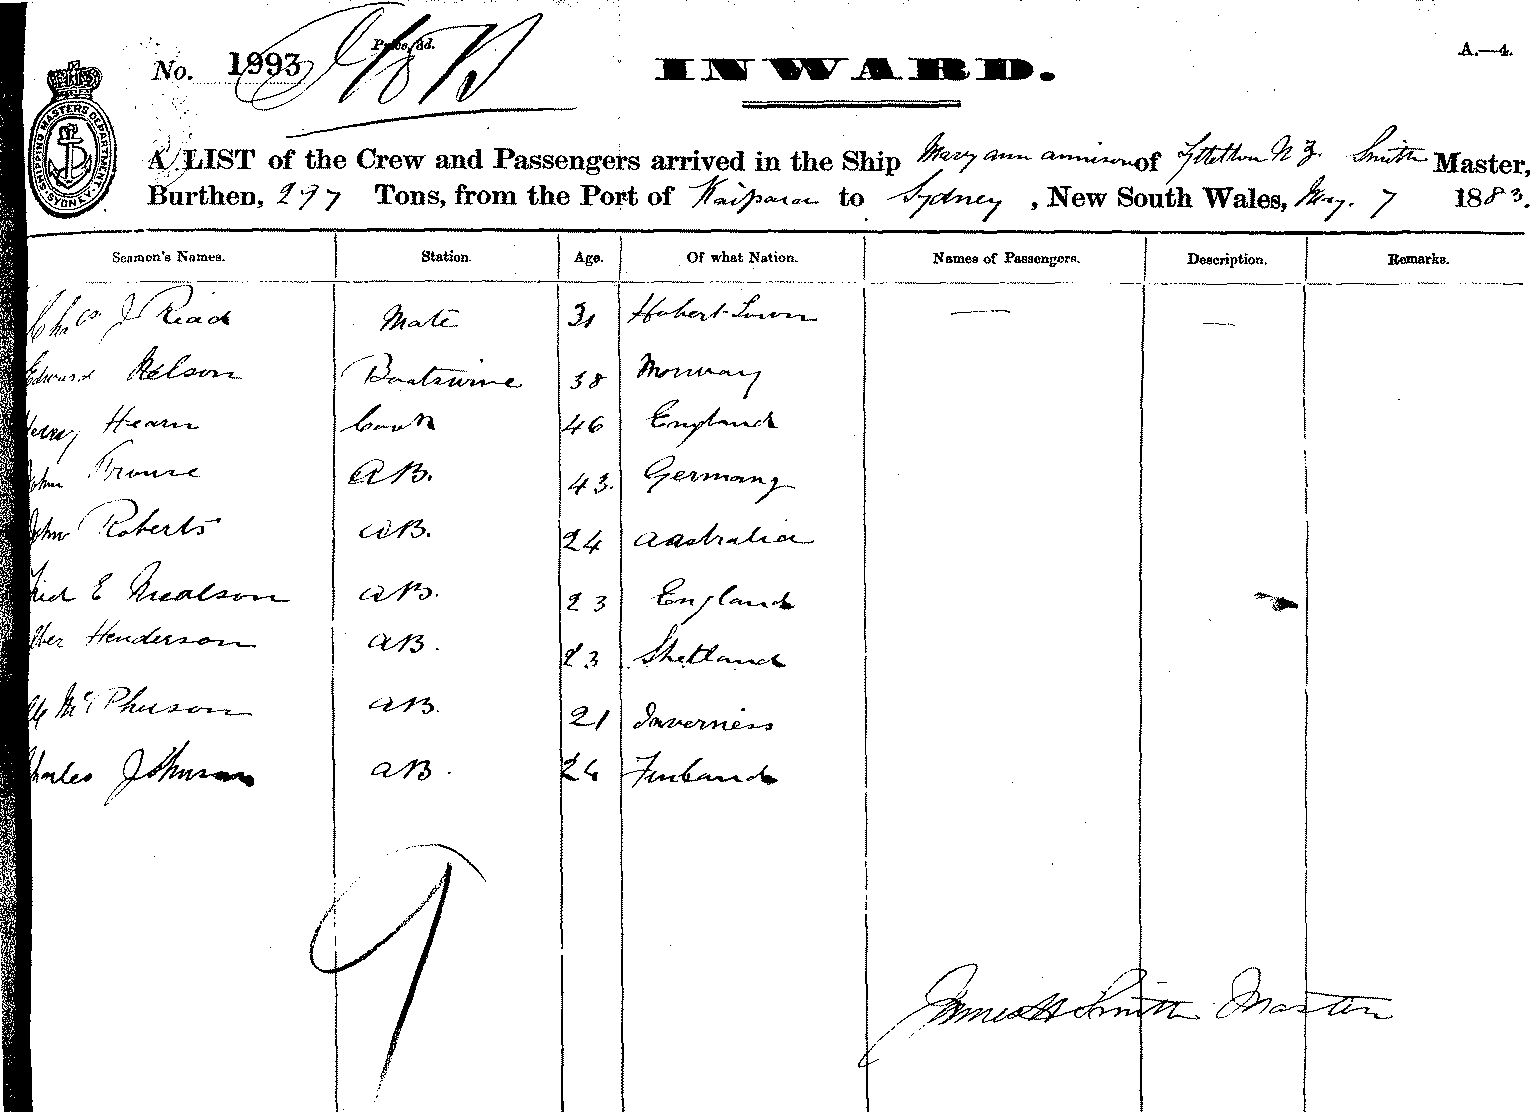 A.—4.
No. 1993
Price, 3d.
INWARD.
SHIPPING MASTERS DEPARTMENT, SYDNEY.
A LIST of the Crew and Passengers arrived in the Ship Mary ann annison of Lyttelton N Z. Smith Master,
Burthen, 297 Tons, from the Port of Kaipara to Sydney, New South Wales, May. 7 1883.
Seamen's Names. Station. Age. Of what Nation. Names of Passengers. Description. Remarks.
Chas J Riad Mate 31 Hobert Town — —
Edward Nelson Boatswine 38 Norway
Henry Hearn Cook 46 England
John AB. 43. Germany
John Roberts AB. 24 Australia
Fred E Nealson AB. 23 England
Henderson AB. 23 Shetland
McPherson AB. 21 Inverness
Charles Johnson AB. Finland
9
James H Smith Master